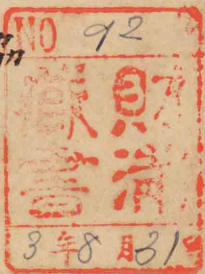 NO 92
財
藏書
3年8月31